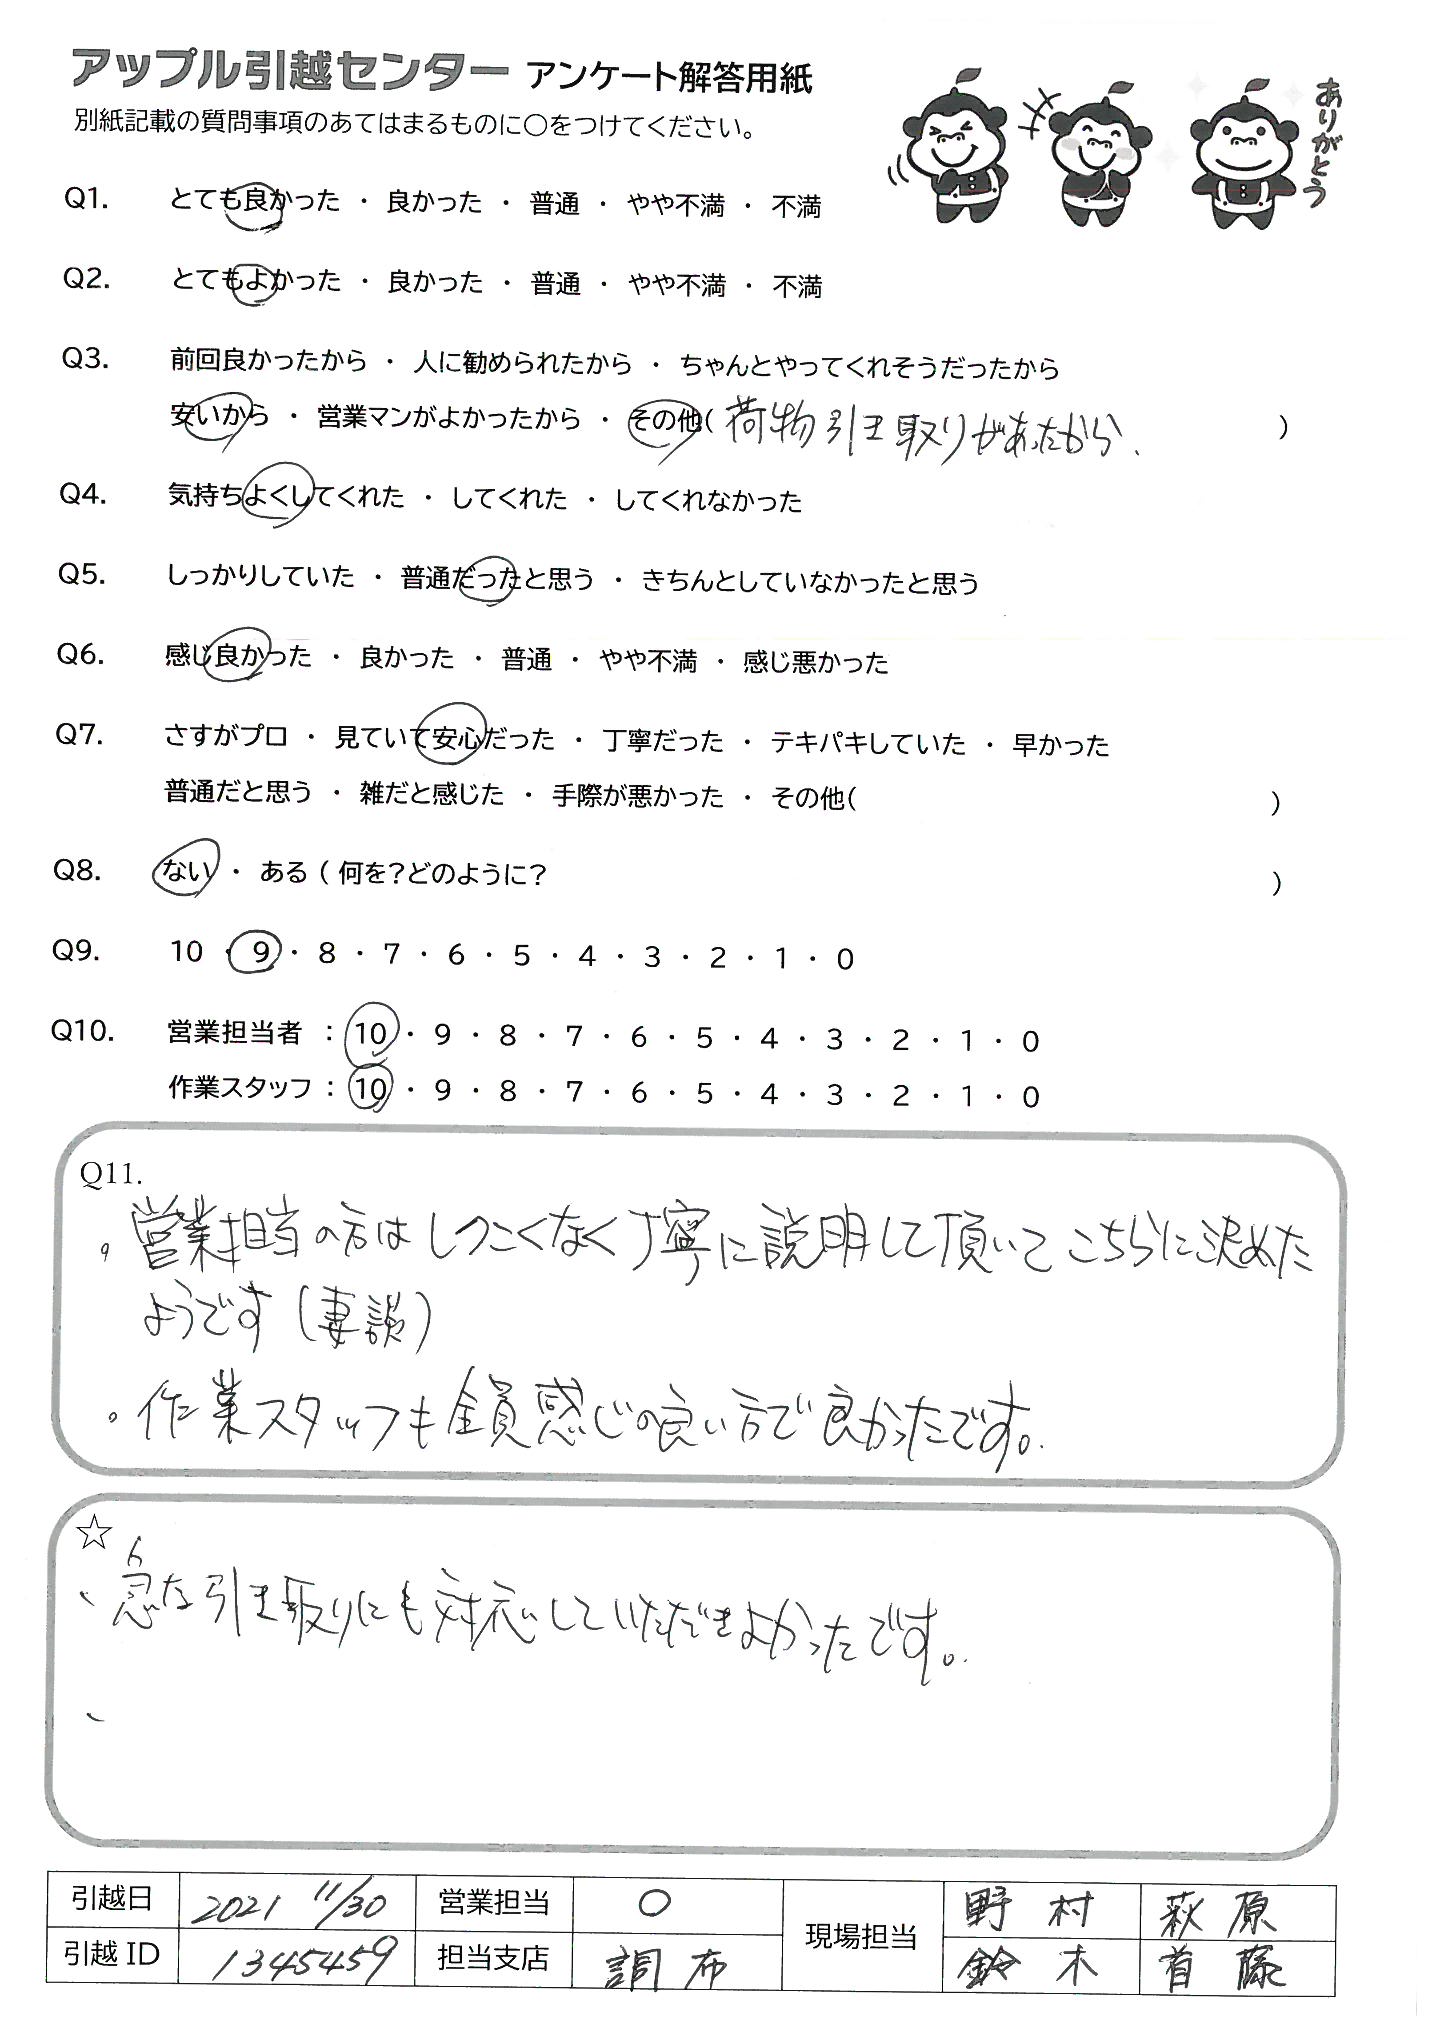 アップル引越センター アンケート解答用紙
別紙記載の質問事項のあてはまるものに○をつけてください。
ありがとう
Q1. とても良かった ・ 良かった ・ 普通 ・ やや不満 ・ 不満
Q2. とてもよかった ・ 良かった ・ 普通 ・ やや不満 ・ 不満
Q3. 前回良かったから ・ 人に勧められたから ・ ちゃんとやってくれそうだったから
安いから ・ 営業マンがよかったから ・ その他( 荷物引き取りがあったから. )
Q4. 気持ちよくしてくれた ・ してくれた ・ してくれなかった
Q5. しっかりしていた ・ 普通だったと思う ・ きちんとしていなかったと思う
Q6. 感じ良かった ・ 良かった ・ 普通 ・ やや不満 ・ 感じ悪かった
Q7. さすがプロ ・ 見ていて安心だった ・ 丁寧だった ・ テキパキしていた ・ 早かった
普通だと思う ・ 雑だと感じた ・ 手際が悪かった ・ その他( )
Q8. ない ・ ある ( 何を?どのように? )
Q9. 10 ・ 9 ・ 8 ・ 7 ・ 6 ・ 5 ・ 4 ・ 3 ・ 2 ・ 1 ・ 0
Q10. 営業担当者 : 10 ・ 9 ・ 8 ・ 7 ・ 6 ・ 5 ・ 4 ・ 3 ・ 2 ・ 1 ・ 0
作業スタッフ : 10 ・ 9 ・ 8 ・ 7 ・ 6 ・ 5 ・ 4 ・ 3 ・ 2 ・ 1 ・ 0
Q11.
。営業担当の方はしつこくなく丁寧に説明して頂いてこちらに決めた
ようです(妻談)
。作業スタッフも全員感じの良い方で良かったです。
☆
、急な引き取りにも対応していただきよかったです。
、
引越日 2021 11/30 営業担当 ○ 現場担当 野村 萩原
引越ID 1345459 担当支店 調布 鈴木 首藤